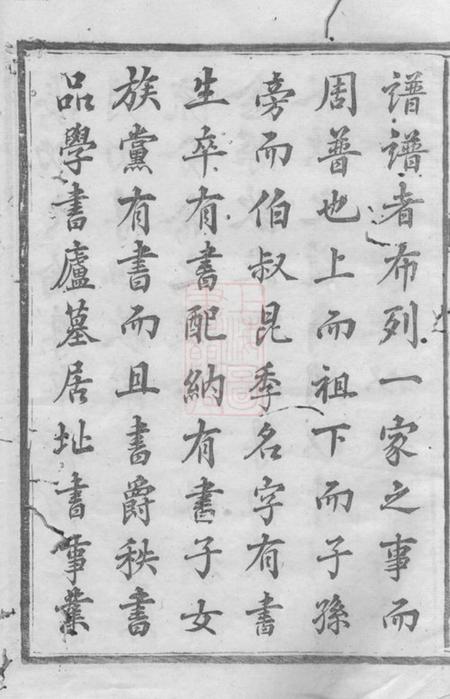 譜譜者布列一家之事而
周普也上而祖下而子孫
旁而伯叔昆季名字有書
生卒有書配納有書子女
族黨有書而且書爵秩書
品學書廬墓居址書事業